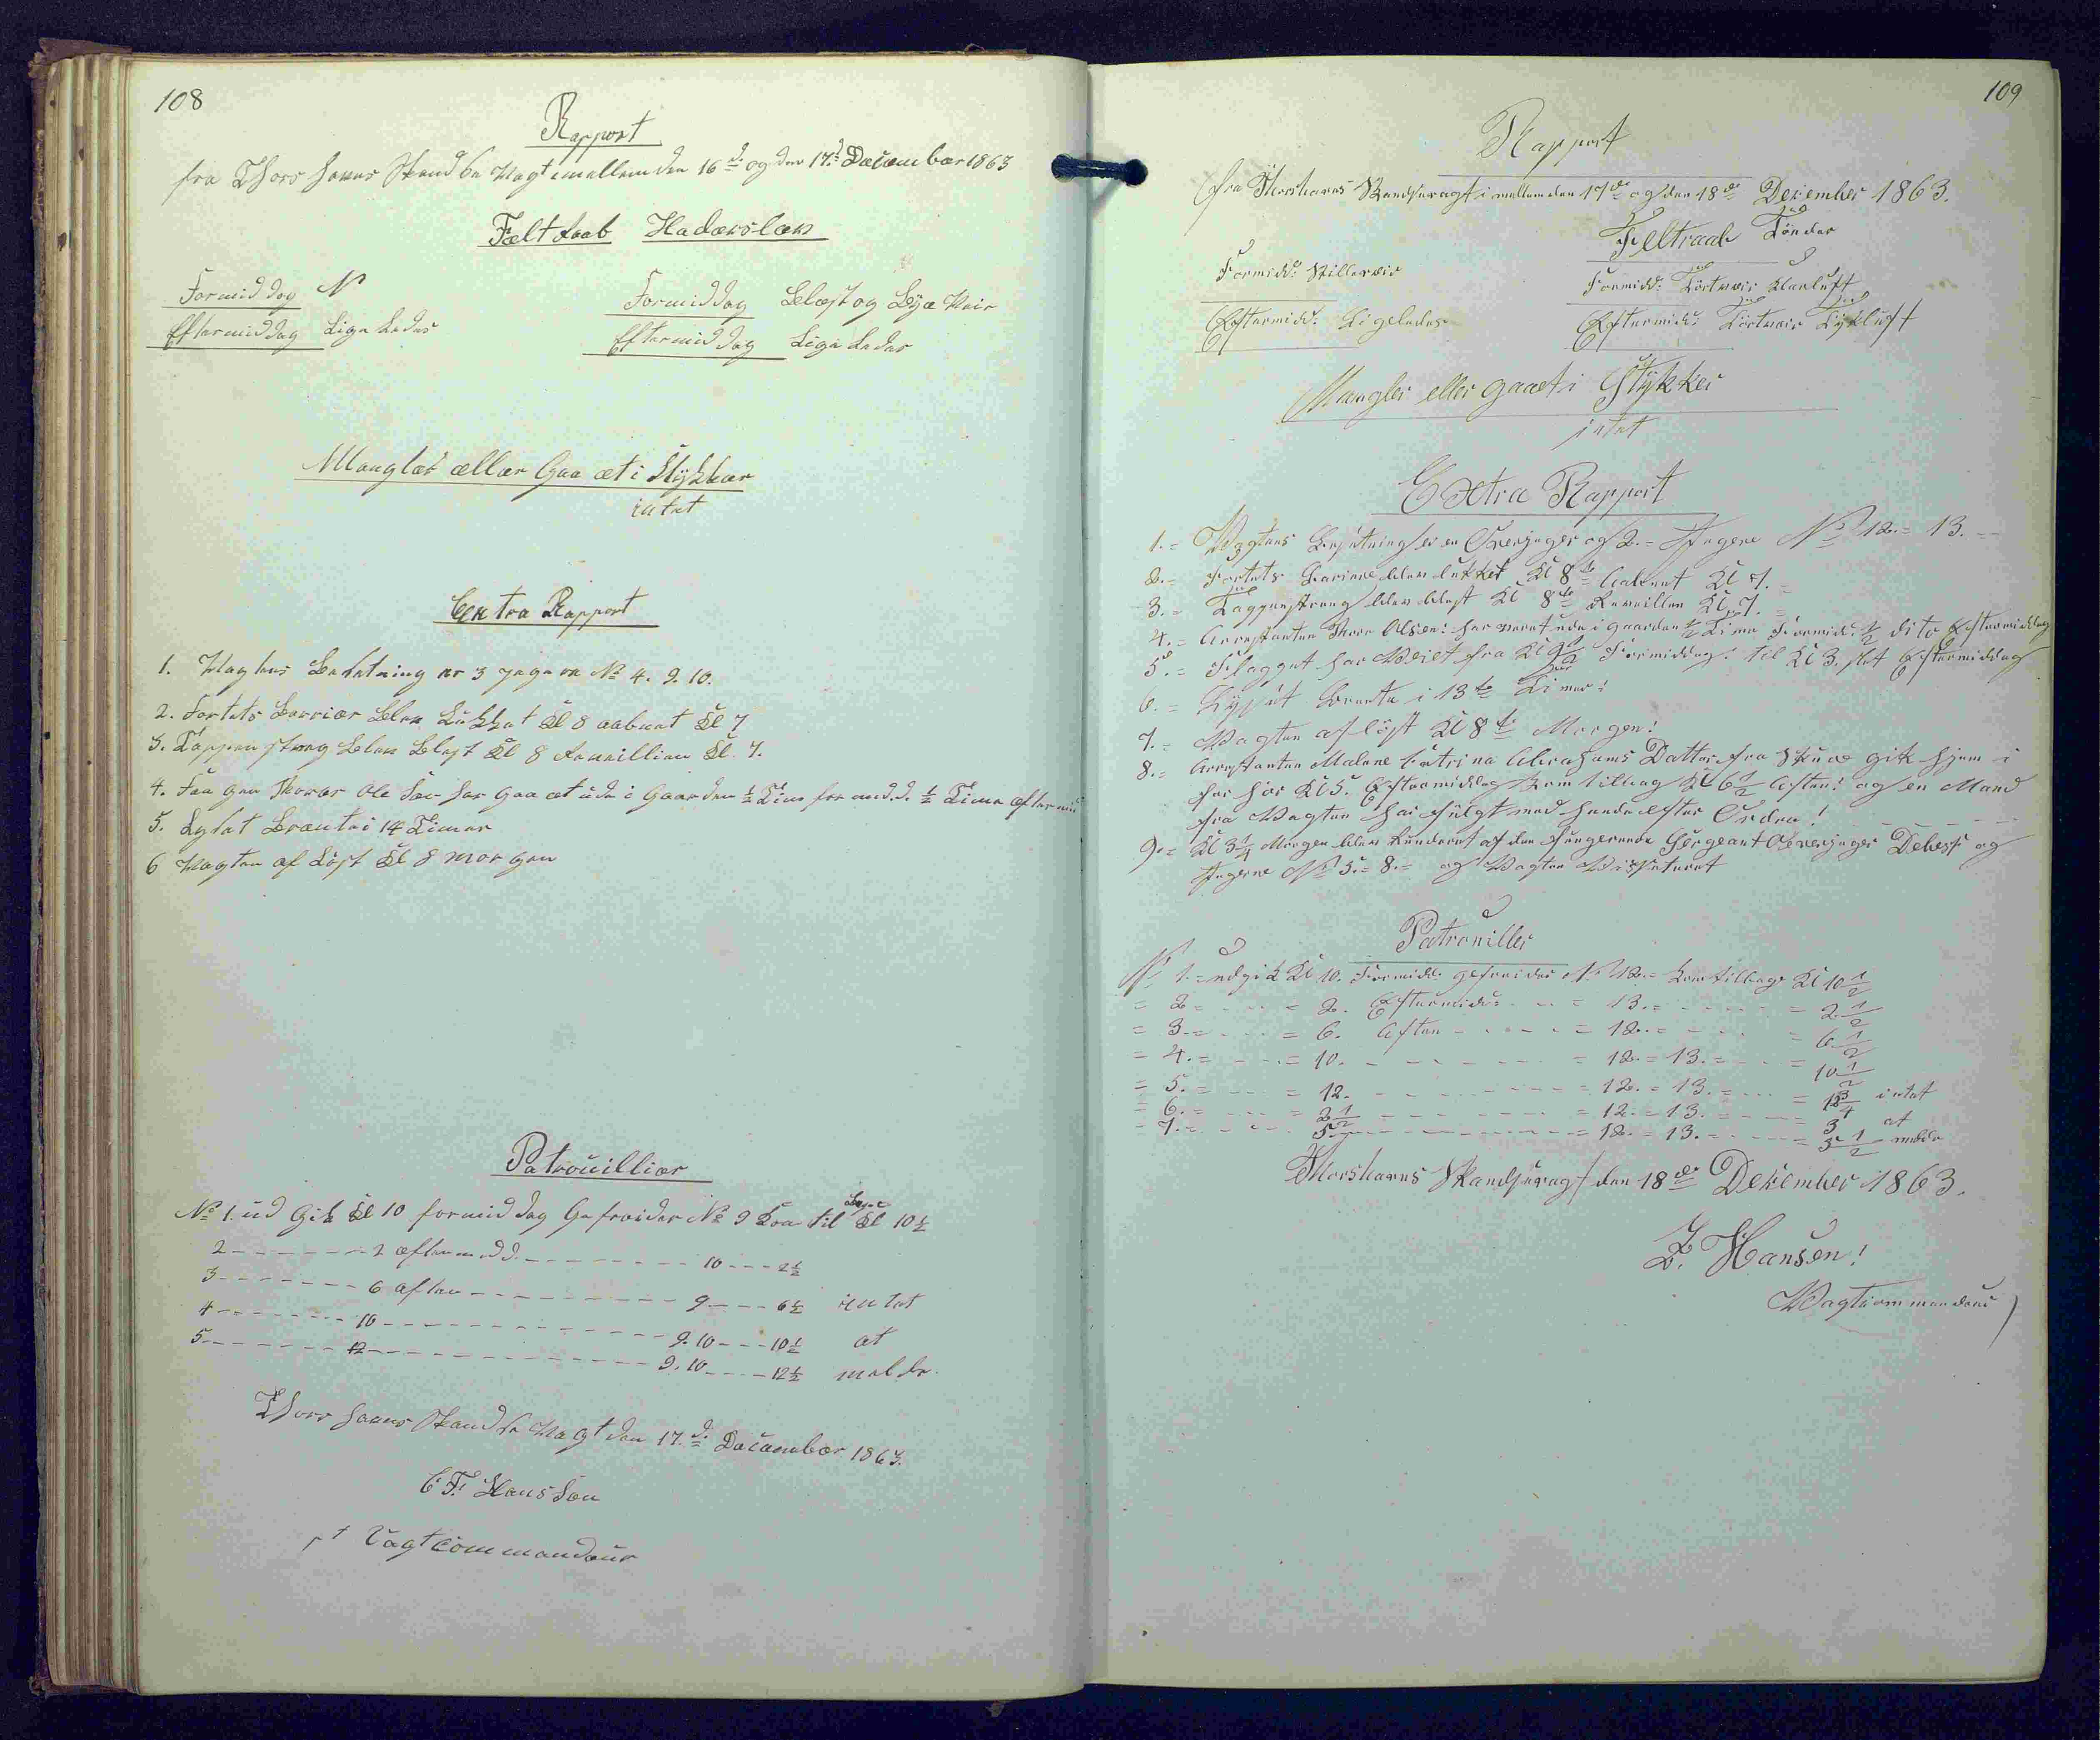 108
Rapport
fra Thorshavns Skandse Vagt imellem den 16d og den 17d December 1863
Feltraab Haderslæv
Formiddag N
Formiddag Blæst og Bye Veir
Eftermiddag Ligeledes
Eftermiddag Ligeledes
Mangler eller Gaaet i Stykker
intet
Extra Rapport
1. Vagtens Besetning er 3 jegere No 4. 9. 10.
2. Fortets Barrier blev Lukket Kl 8 aabnet Kl 7
3. Tappenstreg blev blest Kl 8 Reveillien Kl. 7.
4. Fangen Thomas Olesen har gaaet ude i Gaarden ½ Time formidd. ½ Time eftermid
5. Lyset Brente i 14 Timer
6 Vagten afLöst Kl 8 morgen
Patrouillier
No 1. ud Gik Kl 10 formiddag Gefreider No 9 Kom tilbage Kl 10½
2 - - - - - - 2 eftermidd. - - - - - - - - 10 - - - 2½
3 - - - - - - 6 aften - - - - - - - - - 9 - - - 6½ intet
4 - - - - - - 10 - - - - - - - - - - - 9. 10 - - - 10½ at
5 - - - - - - 12 - - - - - - - - - - - 9. 10 - - - 12½ melde.
Thorshavns Skandse Vagt den 17d December 1863.
C F. Hanssen
pt Vagtcommandeur
109
Rapport
fra Thorshavns Skandsevagt imellem den 17de og den 18de Dezember 1863.
Feltraab Tönder
Formidd: Stilleveir
Formidd: Törtveir Klarluft
Eftermidd: Ligeledes
Eftermidd: Törtveir Tykluft
Mangler eller gaaet i Stykker
intet
Extra Rapport
1. = Vagtens Besetning er en Overjæger og 2. = Jegere No 12. = 13. =
2. = Fortets Bariere blev lukket Kl 8te Aabnet Kl 7. =
3. = Tappenstreng blev blest Kl 8te Reveillen Kl 7. =
4. = Arrestanten Olsen: har veret ude i gaarden ½ Time Formidd: ½ dito Eftermiddag
5. = Flagget har Veiet fra Kl Formiddag: til Kl 3. slet Eftermiddag
6. = Lyset Brente i 13te Timer!
7. = Vagten aflöst Kl 8te Morgen!
8. = Arrestanten Malene Catrina Abrahams Datter fra gik hjem i
for hör Kl 5. Eftermiddag kom tilbag Kl 6½ Aften! og en Mand
fra Vagten har fulgt med hende efter Orden!
9. = Kl 3¼ Morgen blev Runderet af den Fungerende Sergeant Overjæger Debess og
Jegerne No 5. = 8. = og Vagten Visiteret
Patrouiller
No 1. = udgik Kl 10. Formidd: gefreider No 12. = kom tilbage Kl 10½
= 2 = - - - = 2. Eftermidd: - - = 13. = - - - = 2½
= 3. = - - - = 6. Aften - - - - = 12. = - - - = 6½
= 4. = - - - = 10. - - - - - - = 12. = 13. = - - - = 10½
= 5. = - - - = 12. - - - - - - = 12. = 13. = - - - = 12¾ intet
= 6. = - - - = 2½ - - - - - - = 12. = 13. = - - - = 3 at
= 7. = - - - 5. - - - - - - = 12. = 13. = - - - = 5½ melde
Thorshavns Skandsevagt den 18de Dezember 1863.
Z. Hansen!
Vagtcommandeur